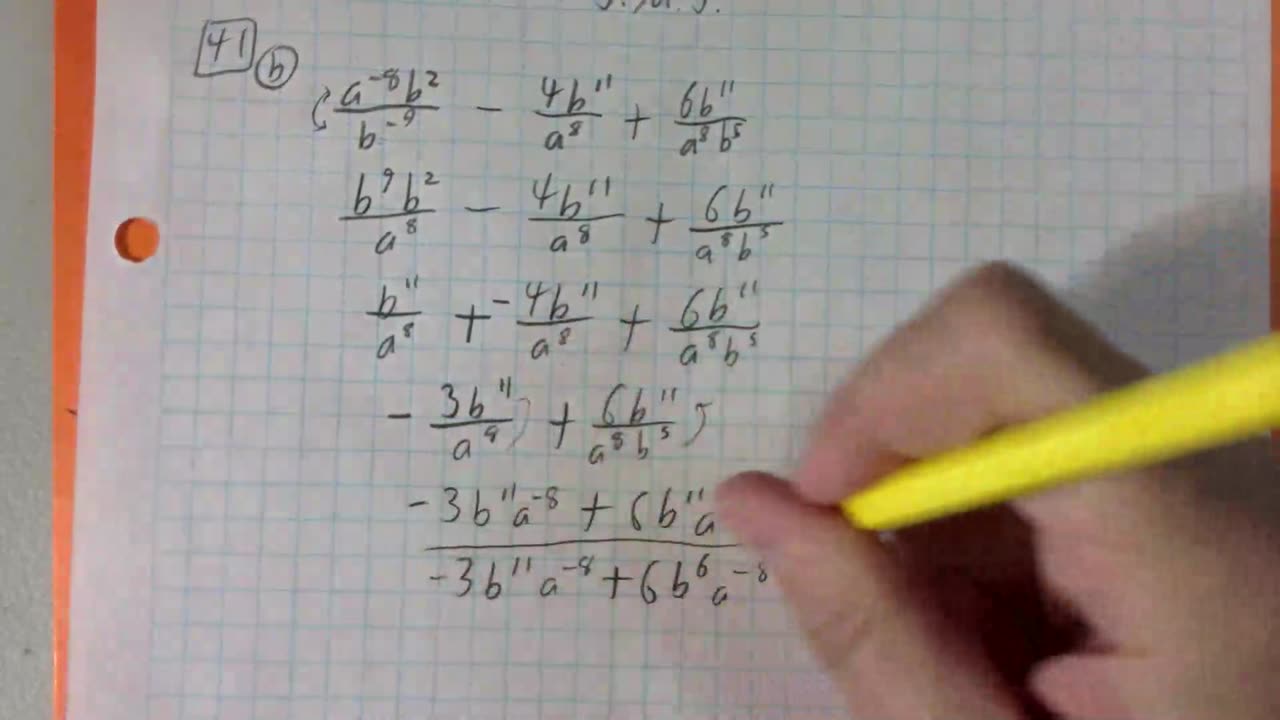 41 b
a⁻⁸b²/b⁻⁹ - 4b¹¹/a⁸ + 6b¹¹/a⁸b⁵
b⁹b²/a⁸ - 4b¹¹/a⁸ + 6b¹¹/a⁸b⁵
b¹¹/a⁸ + -4b¹¹/a⁸ + 6b¹¹/a⁸b⁵
- 3b¹¹/a⁸ + 6b¹¹/a⁸b⁵
-3b¹¹a⁻⁸ + 6b¹¹a
-3b¹¹a⁻⁸ + 6b⁶a⁻⁸